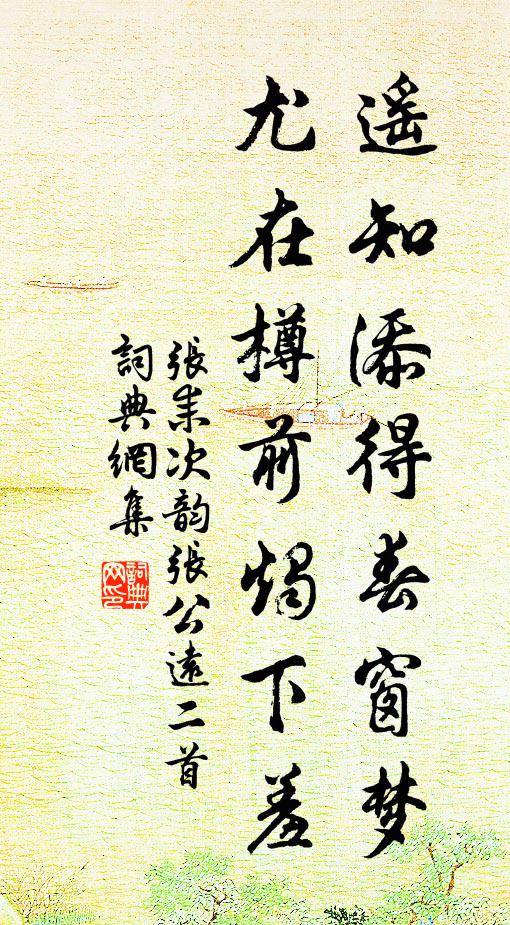 遥知添得春窗梦
尤在樽前烛下羞
張耒次韵張公遠二首
詞典網集
詞典
网印